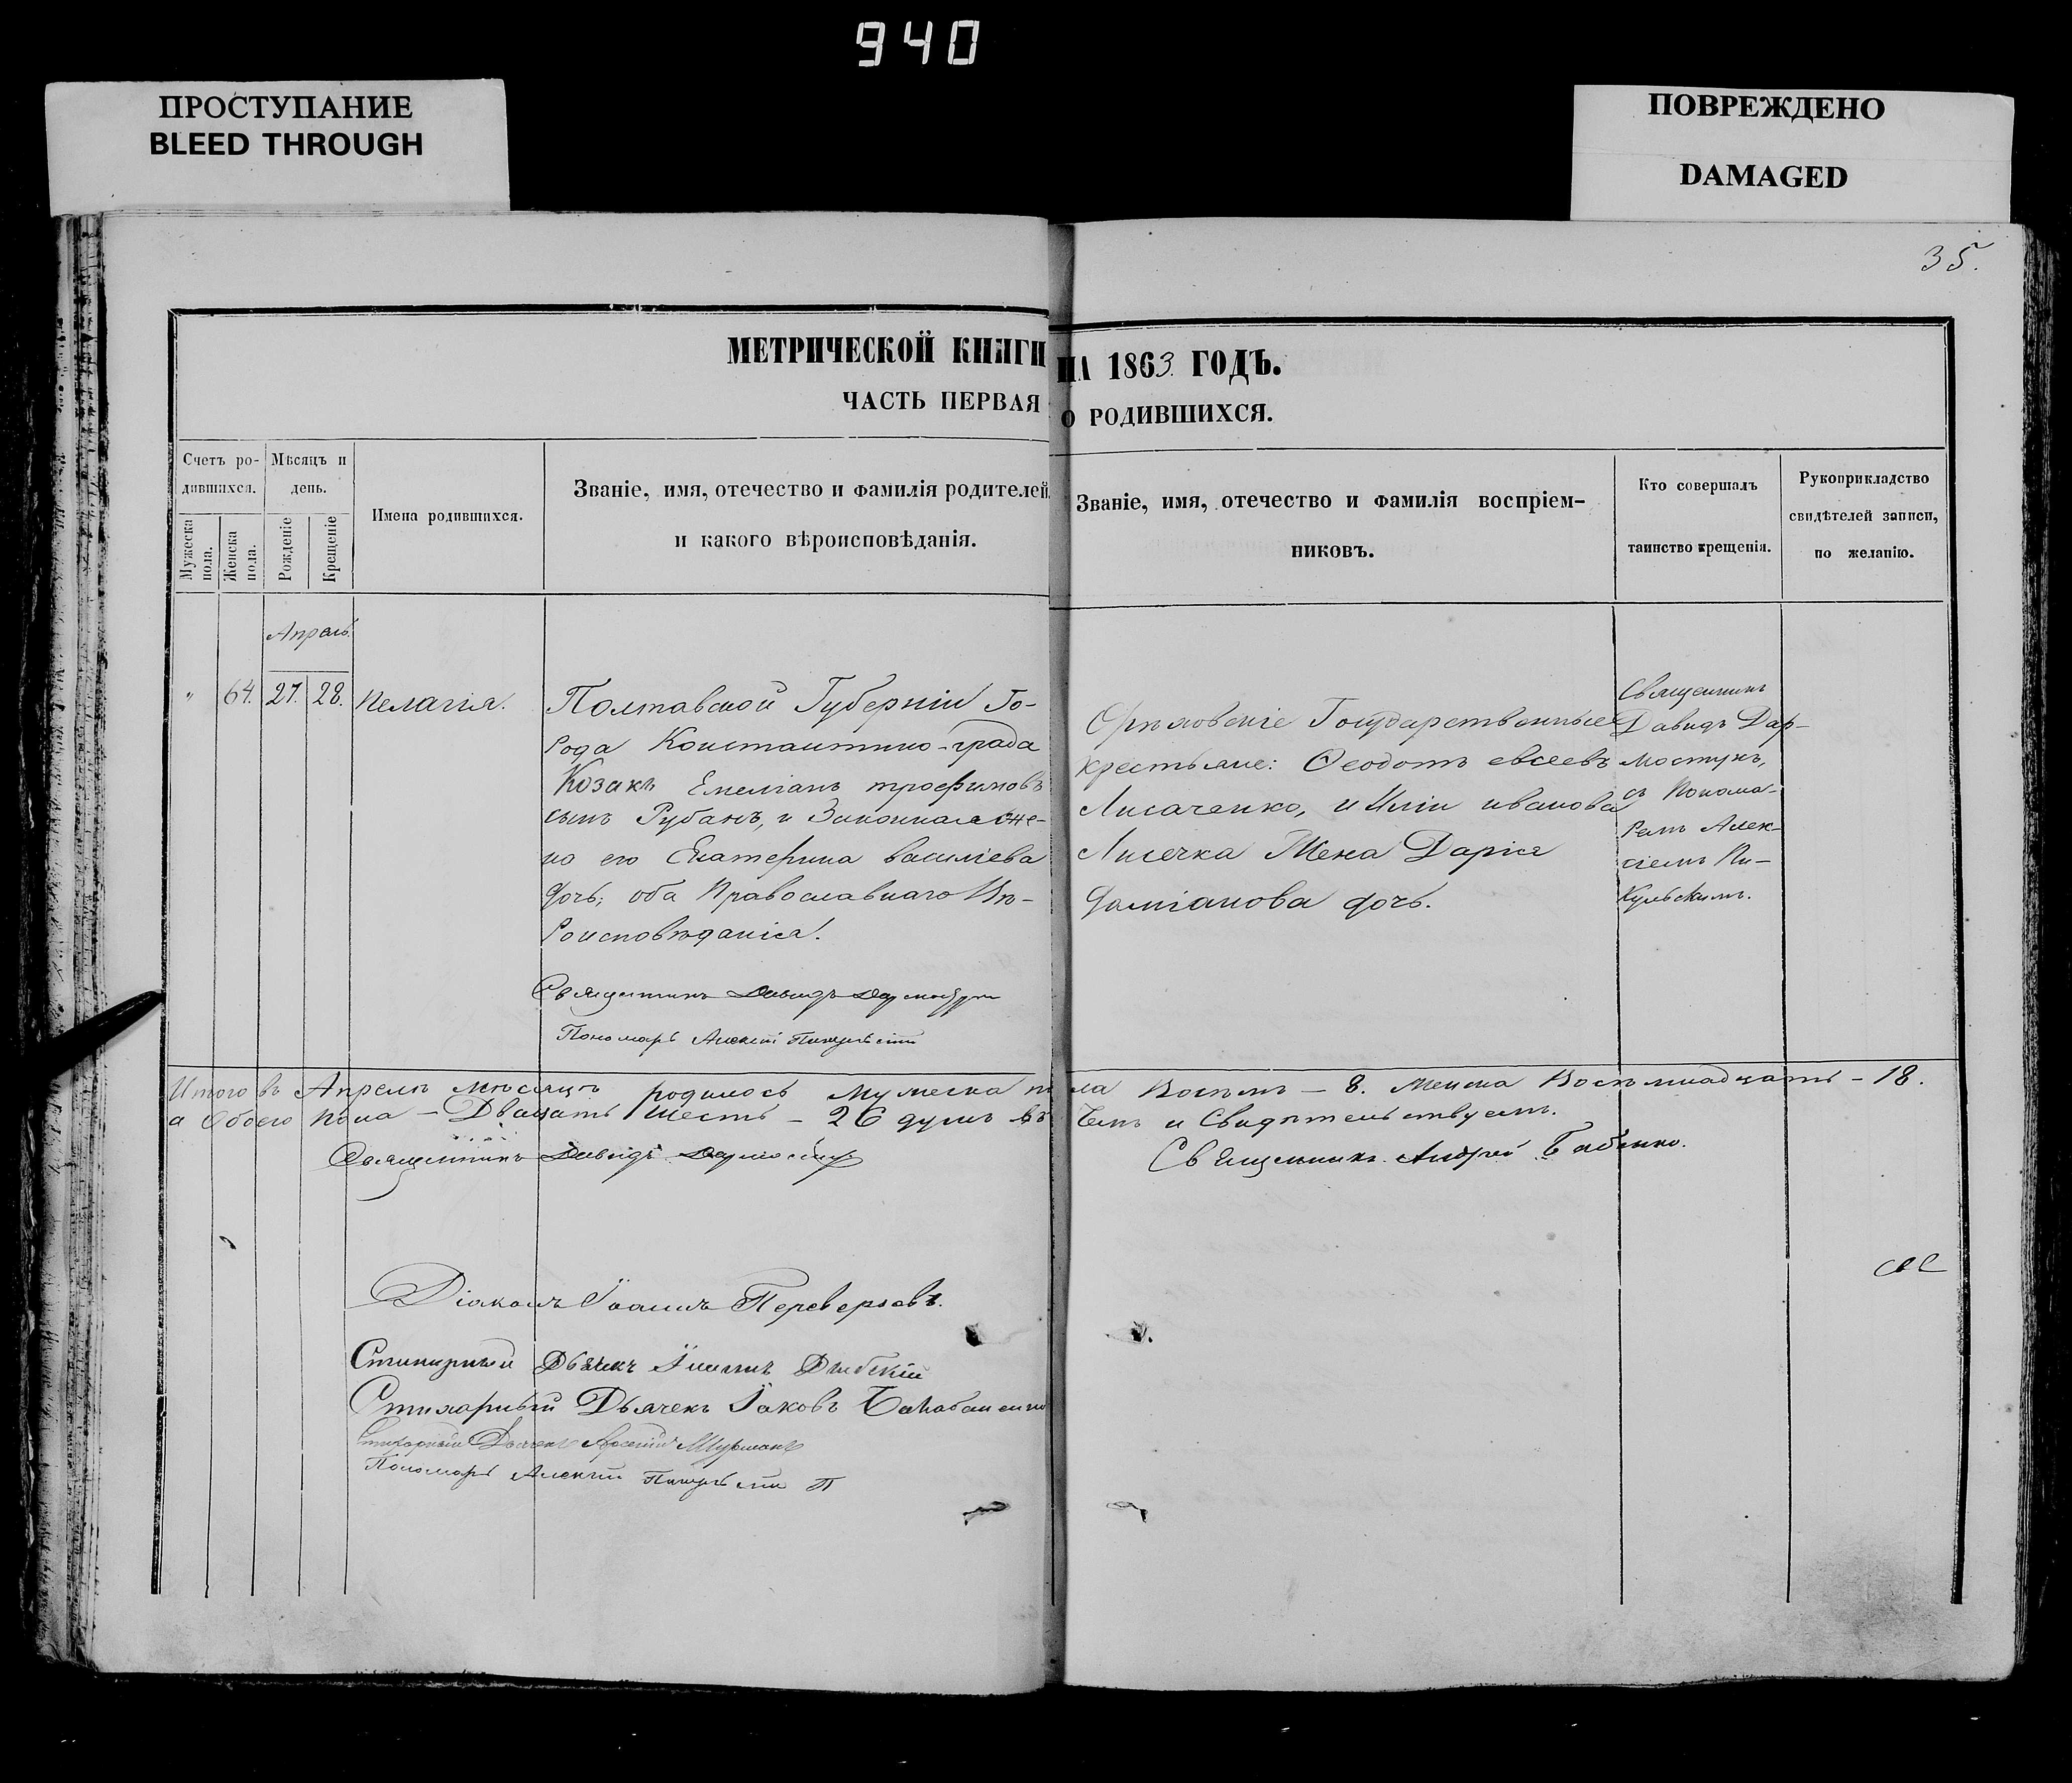 940
ПРОСТУПАНИЕ
BLEED THROUGH
ПОВРЕЖДЕНО
DAMAGED
35.
МЕТРИЧЕСКОЙ КНИГИ НА 1863 ГОДЪ.
ЧАСТЬ ПЕРВАЯ О РОДИВШИХСЯ.
Счетъ ро-
дившихся.
Мужеска
пола.
Женска
пола.
Мѣсяцъ и
день.
Рожденіе
Крещеніе
Имена родившихся.
Званіе, имя, отечество и фамилія родителей
и какого вѣроисповѣданія.
Званіе, имя, отечество и фамилія воспріем-
никовъ.
Кто совершалъ
таинство крещенія.
Рукоприкладство
свидѣтелей записи,
по желанію.
Апрель.
" 64. 27. 28. Пелагія.
Полтавской Губерніи Го-
рода Константино-града
Козакъ Емеліанъ трофимовъ
сынъ Рубанъ, и Законная же-
на его Екатерина василіева
дочь; оба Православнаго Вѣ-
роисповѣданія.
Священникъ Давидъ
Пономарь Алексій
Орѣховскіе Государственные
крестьяне: Ѳеодотъ евсеевъ
Лисаченко, и Иліи иванова
Лисечка Жена Дарія
даміанова дочь.
Священникъ
Давидъ Дар-
мостукъ,
съ Понома-
ремъ Алек-
сіемъ Пи-
кульскимъ.
Итого въ Апрелѣ мѣсяцѣ родилось Мужеска пола Восемь - 8. Женска Восемнадцать - 18.
а Обоего пола - Двацать Шесть - 26 душъ въ чемъ и Свидѣтельствуемъ.
Священникъ Давидъ
Священникъ Андрей Бабенко.
Діаконъ Іоаннъ Переверзевъ.
Стихарный Дьячекъ Іоаннъ
Стихарный Дьячекъ Іаковъ
Стихарный Дьячекъ Арсеній
Пономарь Алексій